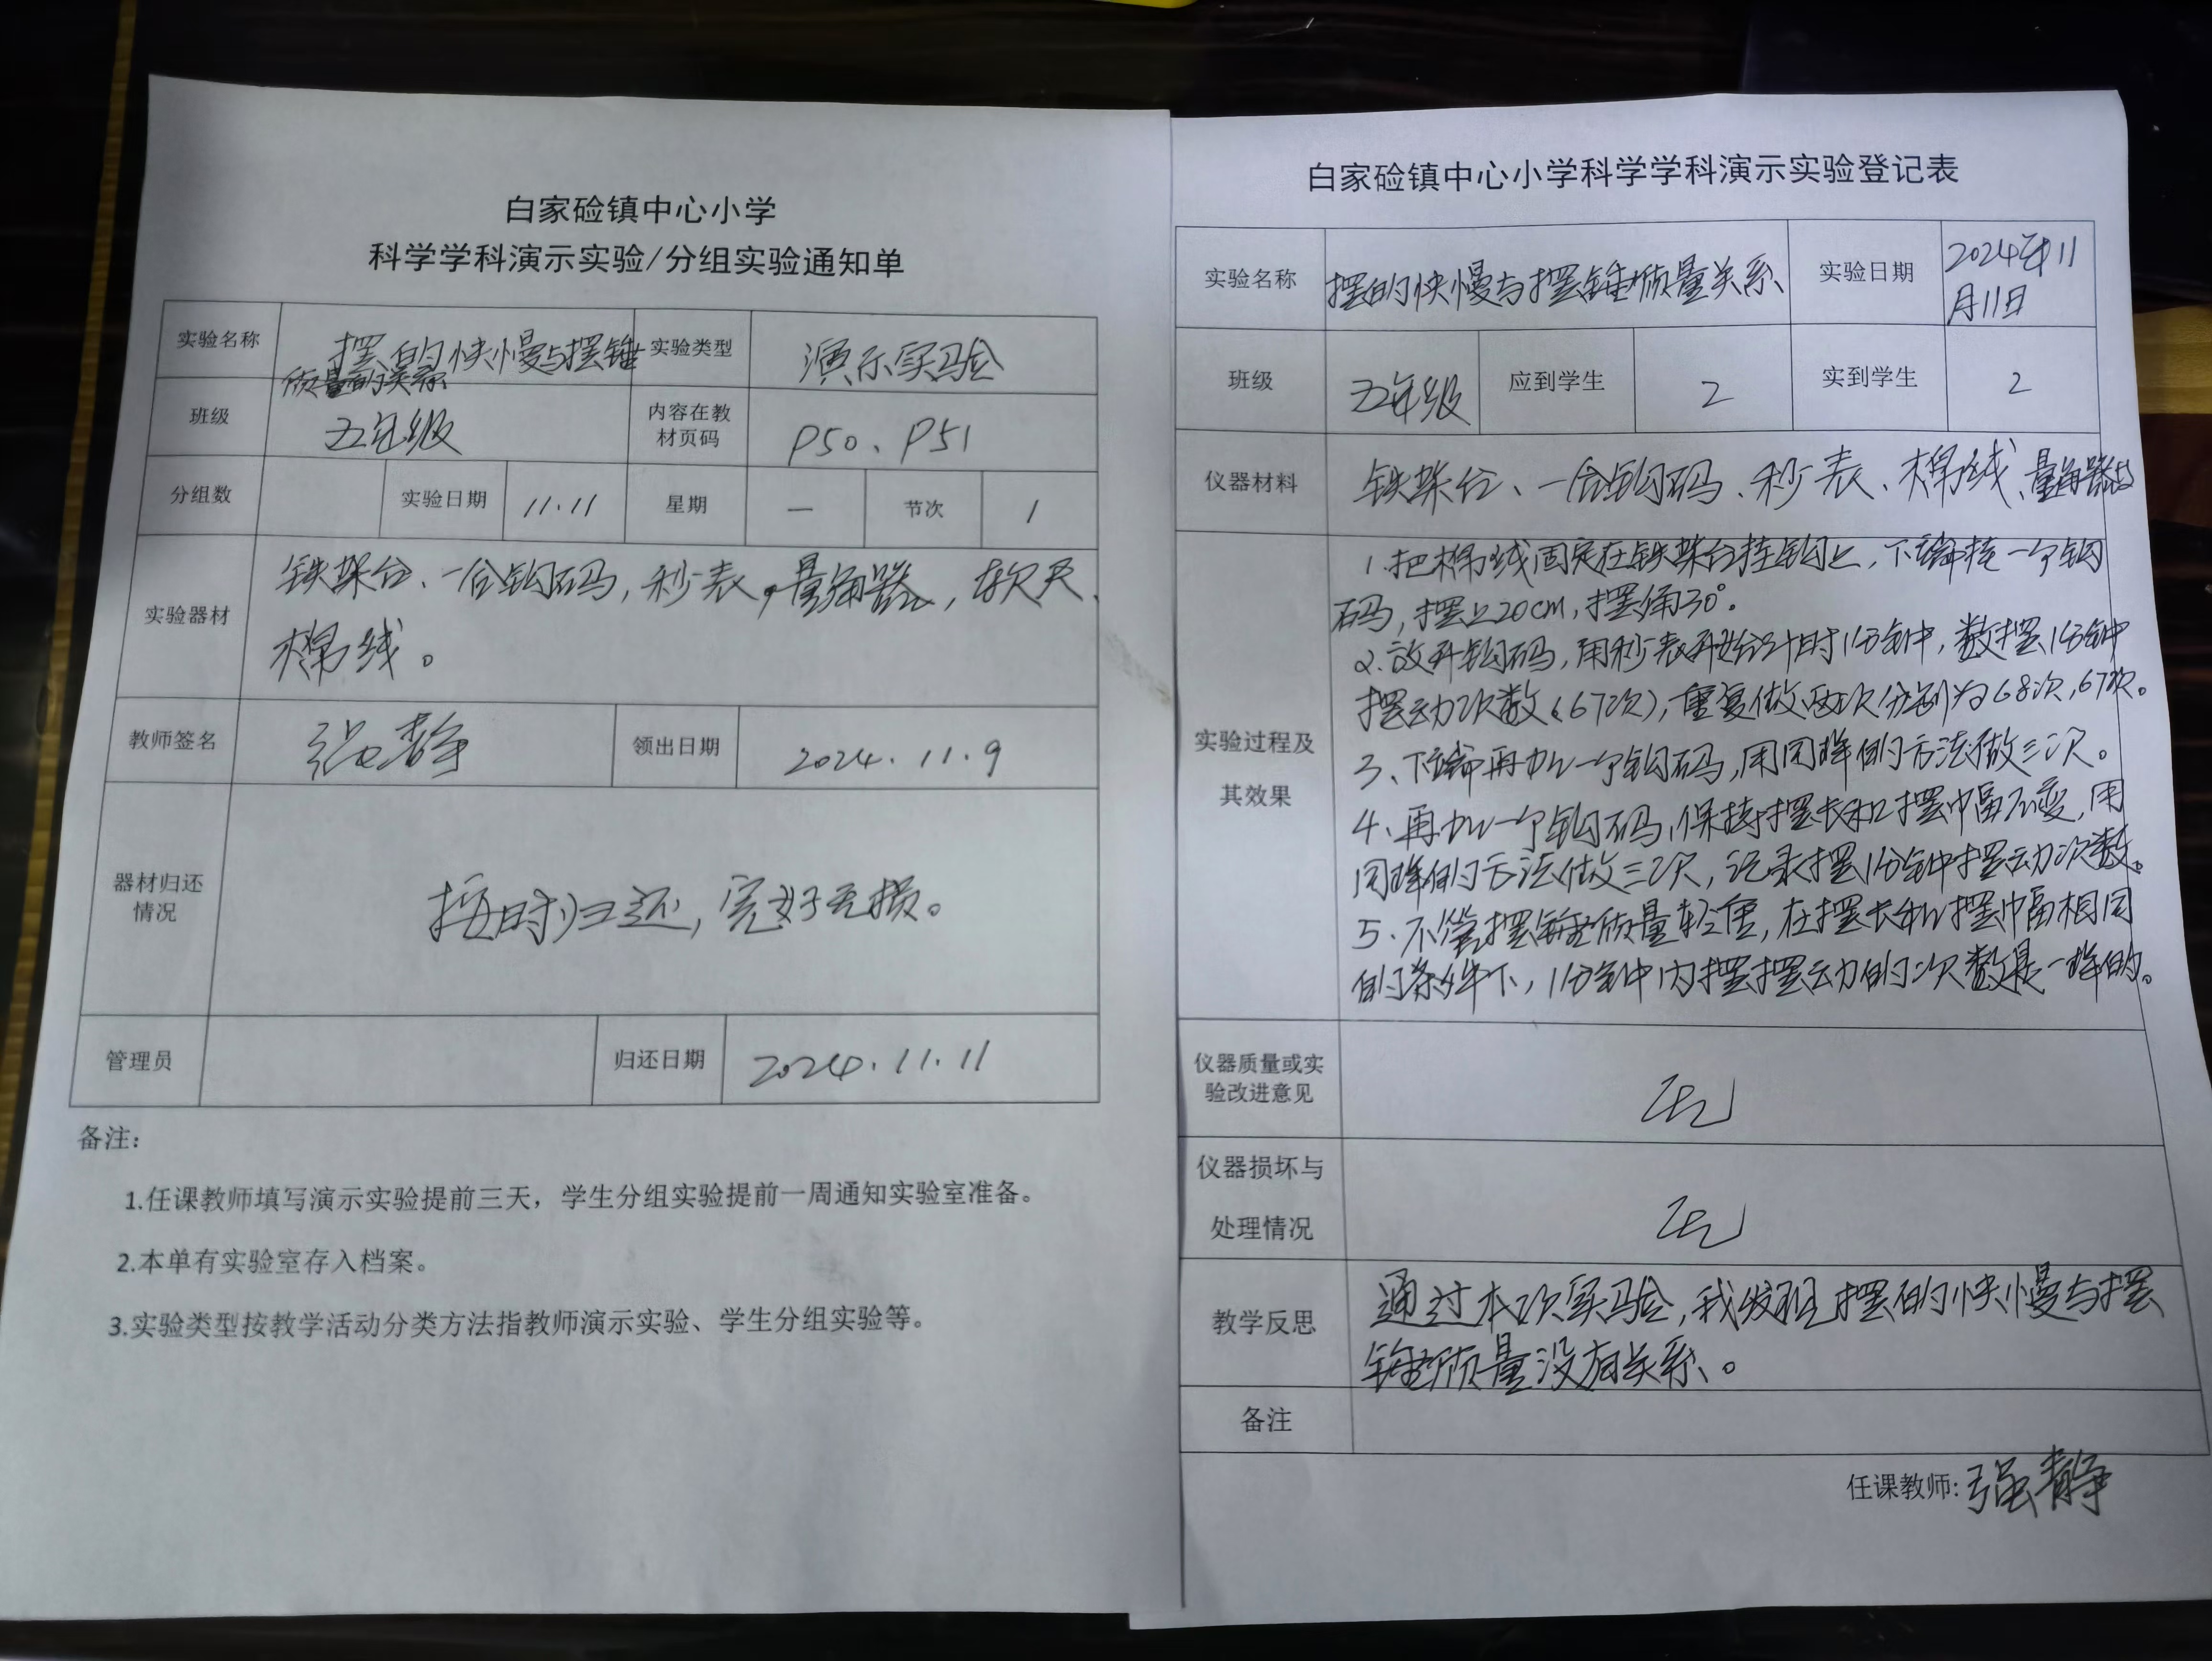 白家硷镇中心小学
科学学科演示实验/分组实验通知单
实验名称 摆的快慢与摆锤质量的关系 实验类型 演示实验
班级 五年级 内容在教材页码 P50、P51
分组数 实验日期 11.11 星期 一 节次 1
实验器材 铁架台、一合钩码,秒表,量角器,软尺、
棉线。
教师签名 强静 领出日期 2024.11.9
器材归还情况 按时归还,完好无损。
管理员 归还日期 2024.11.11
备注:
1.任课教师填写演示实验提前三天，学生分组实验提前一周通知实验室准备。
2.本单有实验室存入档案。
3.实验类型按教学活动分类方法指教师演示实验、学生分组实验等。
白家硷镇中心小学科学学科演示实验登记表
实验名称 摆的快慢与摆锤质量关系 实验日期 2024年11月11日
班级 五年级 应到学生 2 实到学生 2
仪器材料 铁架台、一合钩码、秒表、棉线、量角器
实验过程及其效果
1.把棉线固定在铁架台挂钩上,下端挂一个钩
码,摆长20cm,摆角30°。
2.放开钩码,用秒表开始计时1分钟,数摆1分钟
摆动次数(67次),重复做两次分别为68次,67次。
3、下端再加一个钩码,用同样的方法做三次。
4、再加一个钩码,保持摆长和摆幅不变,用
同样的方法做三次,记录摆1分钟摆动次数。
5、不管摆锤质量轻重,在摆长和摆幅相同
的条件下,1分钟内摆摆动的次数是一样的。
仪器质量或实验改进意见 无
仪器损坏与处理情况 无
教学反思 通过本次实验,我发现摆的快慢与摆
锤质量没有关系。
备注
任课教师:强静